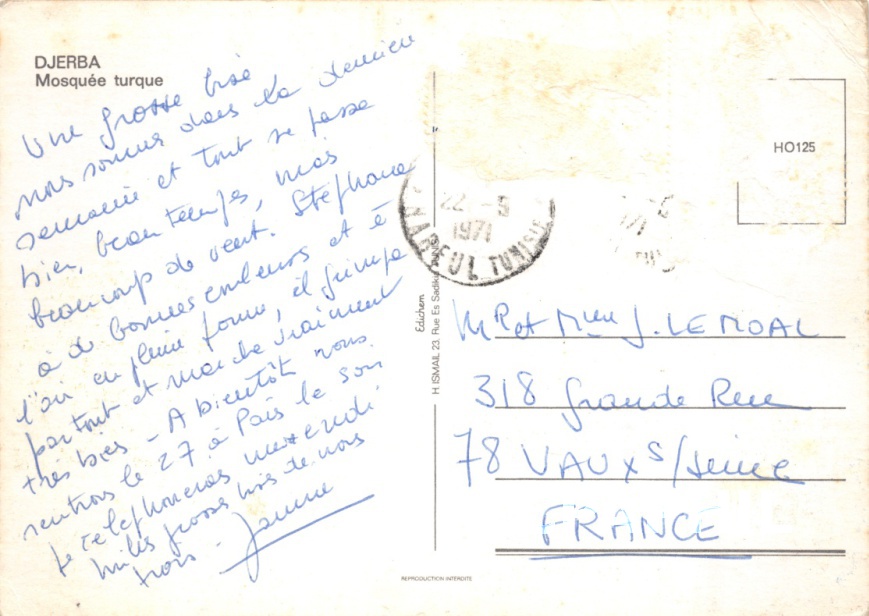 DJERBA
Mosquée turque
Une grosse bise
nous sommes dans la dernière
semaine et tout se passe
bien, beau temps, mais
beaucoup de vent. Stéphane
a de bonnes couleurs et a
l'air en pleine forme, il grimpe
partout et marche vraiment
très bien - A bientôt nous
rentrons le 27 à Paris le son
je téléphonerai mercredi
milles grosses bises de nous
trois - Jeanne
22 -9
1971
NABEUL TUNISIE
HO125
Edichem
H. ISMAIL 23, Rue Es Sadikia
Mr et Mme J. LE MOAL
318 Grande Rue
78 VAUX s/seine
FRANCE
REPRODUCTION INTERDITE